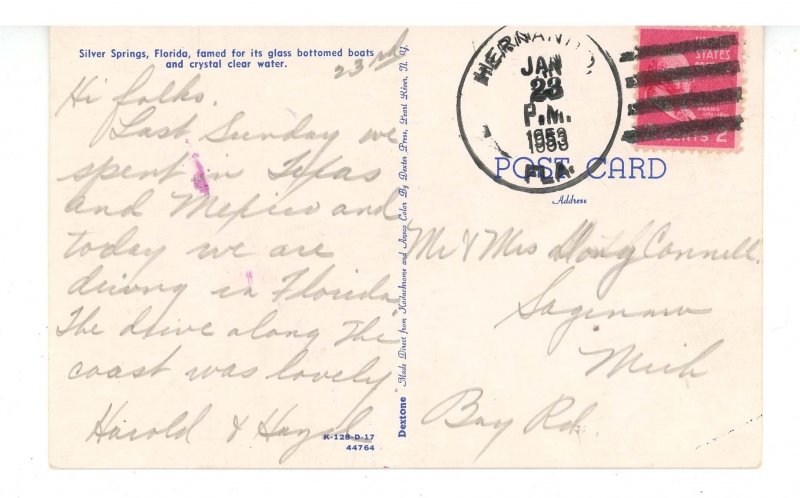 Silver Springs, Florida, famed for its glass bottomed boats
and crystal clear water.
23rd
Hi folks.
Last Sunday we
spent in Texas
and Mexico and
today we are
driving in Florida
The drive along the
coast was lovely.
Harold & Hazel
K-128-D-17
44764
Dextone Made Direct from Kodachrome and Ansco Color By Dexter Press, Pearl River, N. Y.
HERNAN
JAN
23
P.M.
1953
FLA.
UNITED
STATES
CENTS 2
POST CARD
Address
Mr & Mrs Connell.
Saginaw
Mich
Bay Rd.